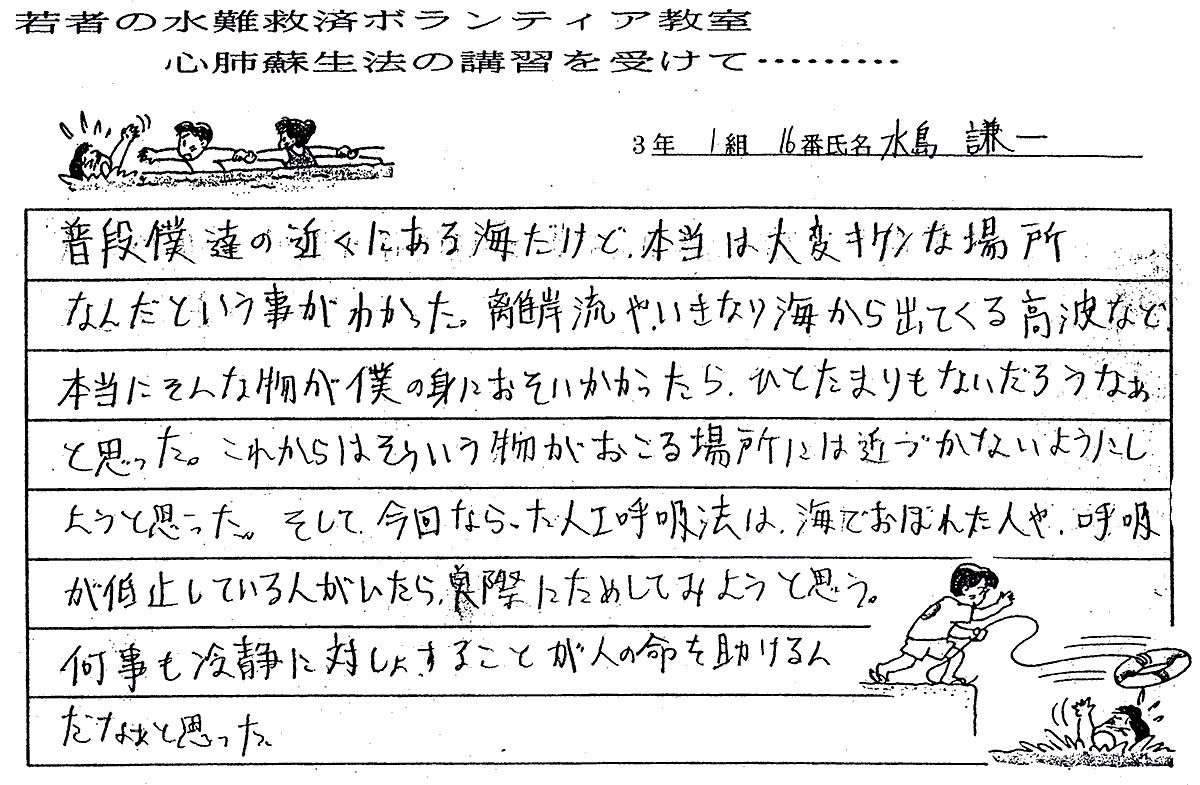 若者の水難救済ボランティア教室
心肺蘇生法の講習を受けて………
3年 1組 16番氏名 水島 謙一
普段僕達の近くにある海だけど、本当は大変キケンな場所
なんだという事がわかった。離岸流や、いきなり海から出てくる高波など、
本当にそんな物が僕の身におそいかかったら、ひとたまりもないだろうなぁ
と思った。これからはそういう物がおこる場所には近づかないようにし
ようと思った。そして、今回ならった人工呼吸法は、海でおぼれた人や、呼吸
が低止している人がいたら、実際にためしてみようと思う。
何事も冷静に対しょすることが人の命を助けるん
だなぁと思った。